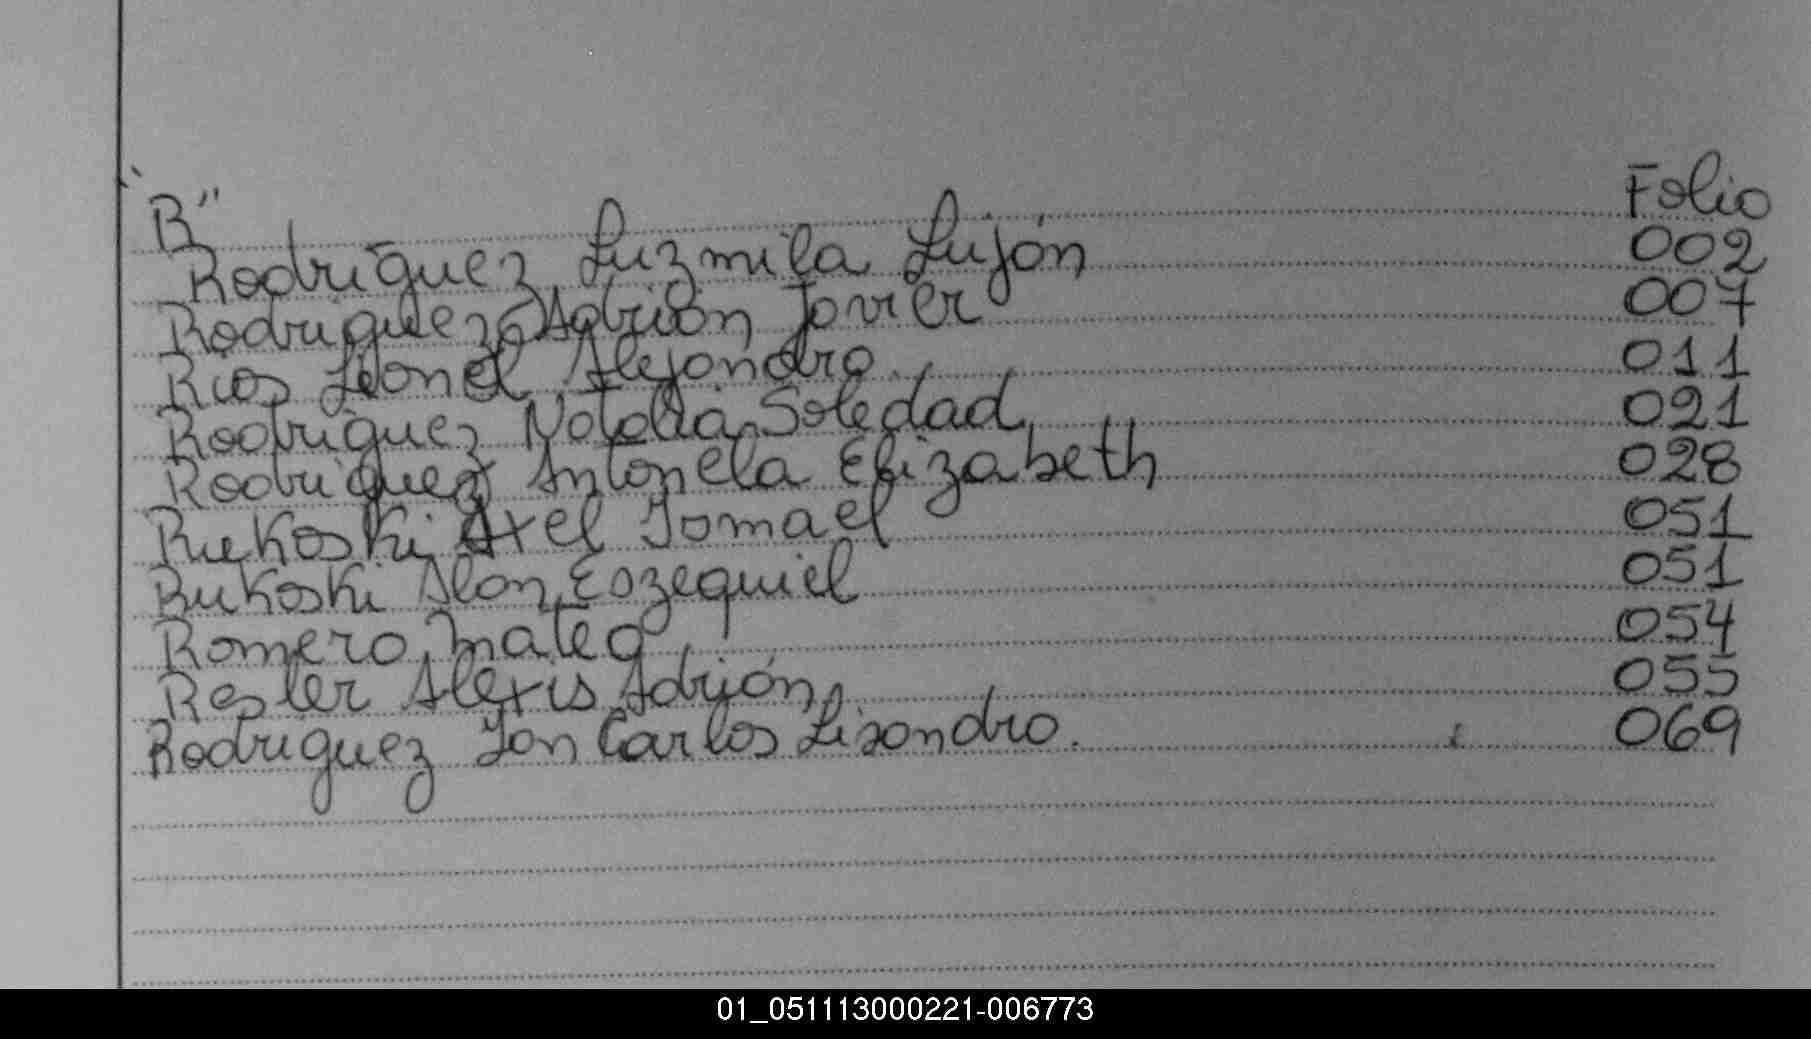 "R" Folio
Rodriguez Luzmila Luján 002
Rodriguez Adrián Javier 007
Rios Leonel Alejandro 011
Rodriguez Natalia Soledad 021
Rodriguez Antonela Elizabeth 028
Rukoski Axel Ismael 051
Rukoski Alan Eszequiel 051
Romero Mateo 054
Resler Alexis Adrián 055
Rodriguez Ian Carlos Lisandro. 069
01_051113000221-006773